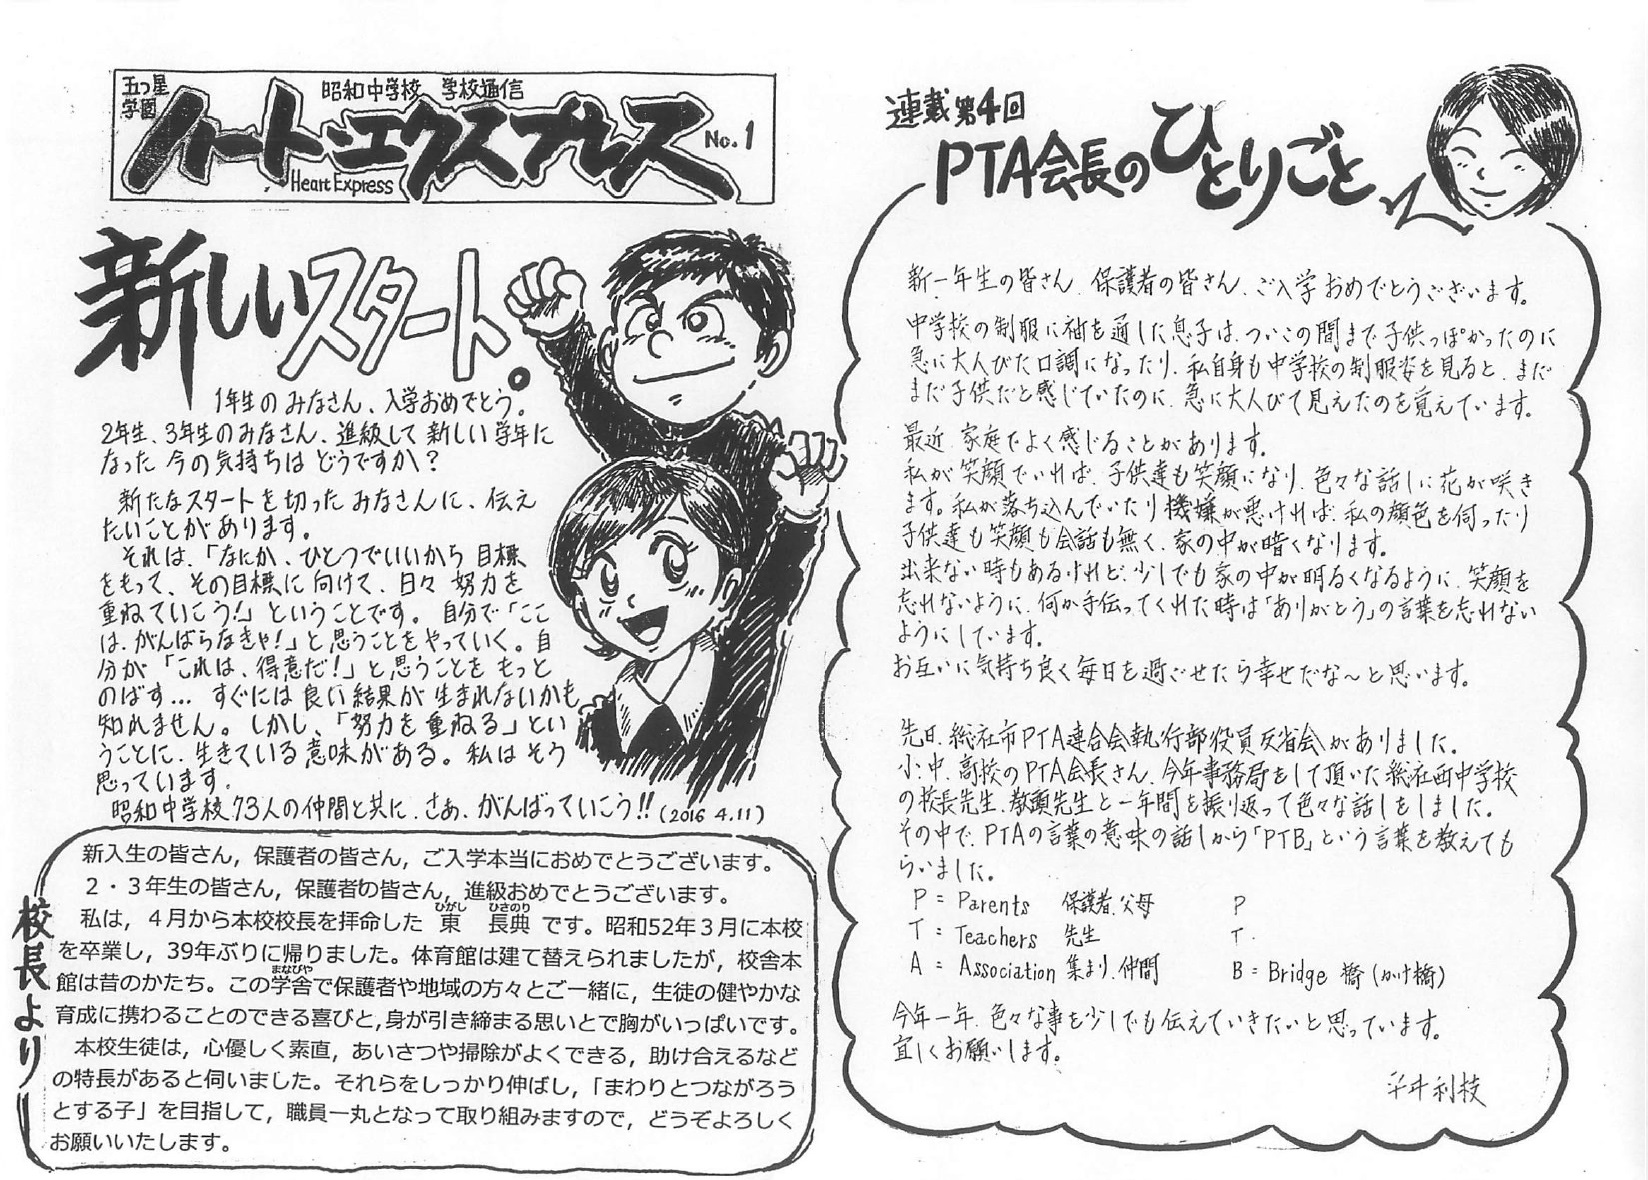 五つ星
学園
昭和中学校 学校通信
ハート・エクスプレス
Heart Express
No.1
新しいスタート。
1年生のみなさん、入学おめでとう。
2年生、3年生のみなさん、進級して新しい学年に
なった今の気持ちはどうですか？
新たなスタートを切ったみなさんに、伝え
たいことがあります。
それは、「なにか、ひとつでいいから目標
をもって、その目標に向けて、日々努力を
重ねていこう！」ということです。自分で「ここ
は、がんばらなきゃ！」と思うことをやっていく。自
分が「これは、得意だ！」と思うことをもっと
のばす… すぐには良い結果が生まれないかも
知れません。しかし、「努力を重ねる」とい
うことに、生きている意味がある。私はそう
思っています。
昭和中学校73人の仲間と共に、さあ、がんばっていこう!!（2016 4.11）
校長より
新入生の皆さん，保護者の皆さん，ご入学本当におめでとうございます。
２・３年生の皆さん，保護者の皆さん，進級おめでとうございます。
ひがし ひさのり
私は，４月から本校校長を拝命した 東 長典 です。昭和52年３月に本校
を卒業し，39年ぶりに帰りました。体育館は建て替えられましたが，校舎本
まなびや
館は昔のかたち。この学舎で保護者や地域の方々とご一緒に，生徒の健やかな
育成に携わることのできる喜びと，身が引き締まる思いとで胸がいっぱいです。
本校生徒は，心優しく素直，あいさつや掃除がよくできる，助け合えるなど
の特長があると伺いました。それらをしっかり伸ばし，「まわりとつながろう
とする子」を目指して，職員一丸となって取り組みますので，どうぞよろしく
お願いいたします。
連載第4回
PTA会長のひとりごと
新一年生の皆さん、保護者の皆さん、ご入学おめでとうございます。
中学校の制服に袖を通した息子は、ついこの間まで子供っぽかったのに
急に大人びた口調になったり、私自身も中学校の制服姿を見ると、まだ
まだ子供だと感じていたのに、急に大人びて見えたのを覚えています。
最近、家庭でよく感じることがあります。
私が笑顔でいれば、子供達も笑顔になり、色々な話しに花が咲き
ます。私が落ち込んでいたり機嫌が悪ければ、私の顔色を伺ったり
子供達も笑顔も会話も無く、家の中が暗くなります。
出来ない時もあるけれど、少しでも家の中が明るくなるように、笑顔を
忘れないように、何か手伝ってくれた時は「ありがとう」の言葉を忘れない
ようにしています。
お互いに気持ち良く毎日を過ごせたら幸せだな～と思います。
先日、総社市PTA連合会執行部役員反省会がありました。
小、中、高校のPTA会長さん、今年事務局をして頂いた総社西中学校
の校長先生、教頭先生と一年間を振り返って色々な話しをしました。
その中で、PTAの言葉の意味の話しから「PTB」という言葉を教えても
らいました。
P = Parents 保護者、父母 P
T = Teachers 先生 T
A = Association 集まり、仲間 B = Bridge 橋（かけ橋）
今年一年、色々な事を少しでも伝えていきたいと思っています。
宜しくお願いします。
平井利枝